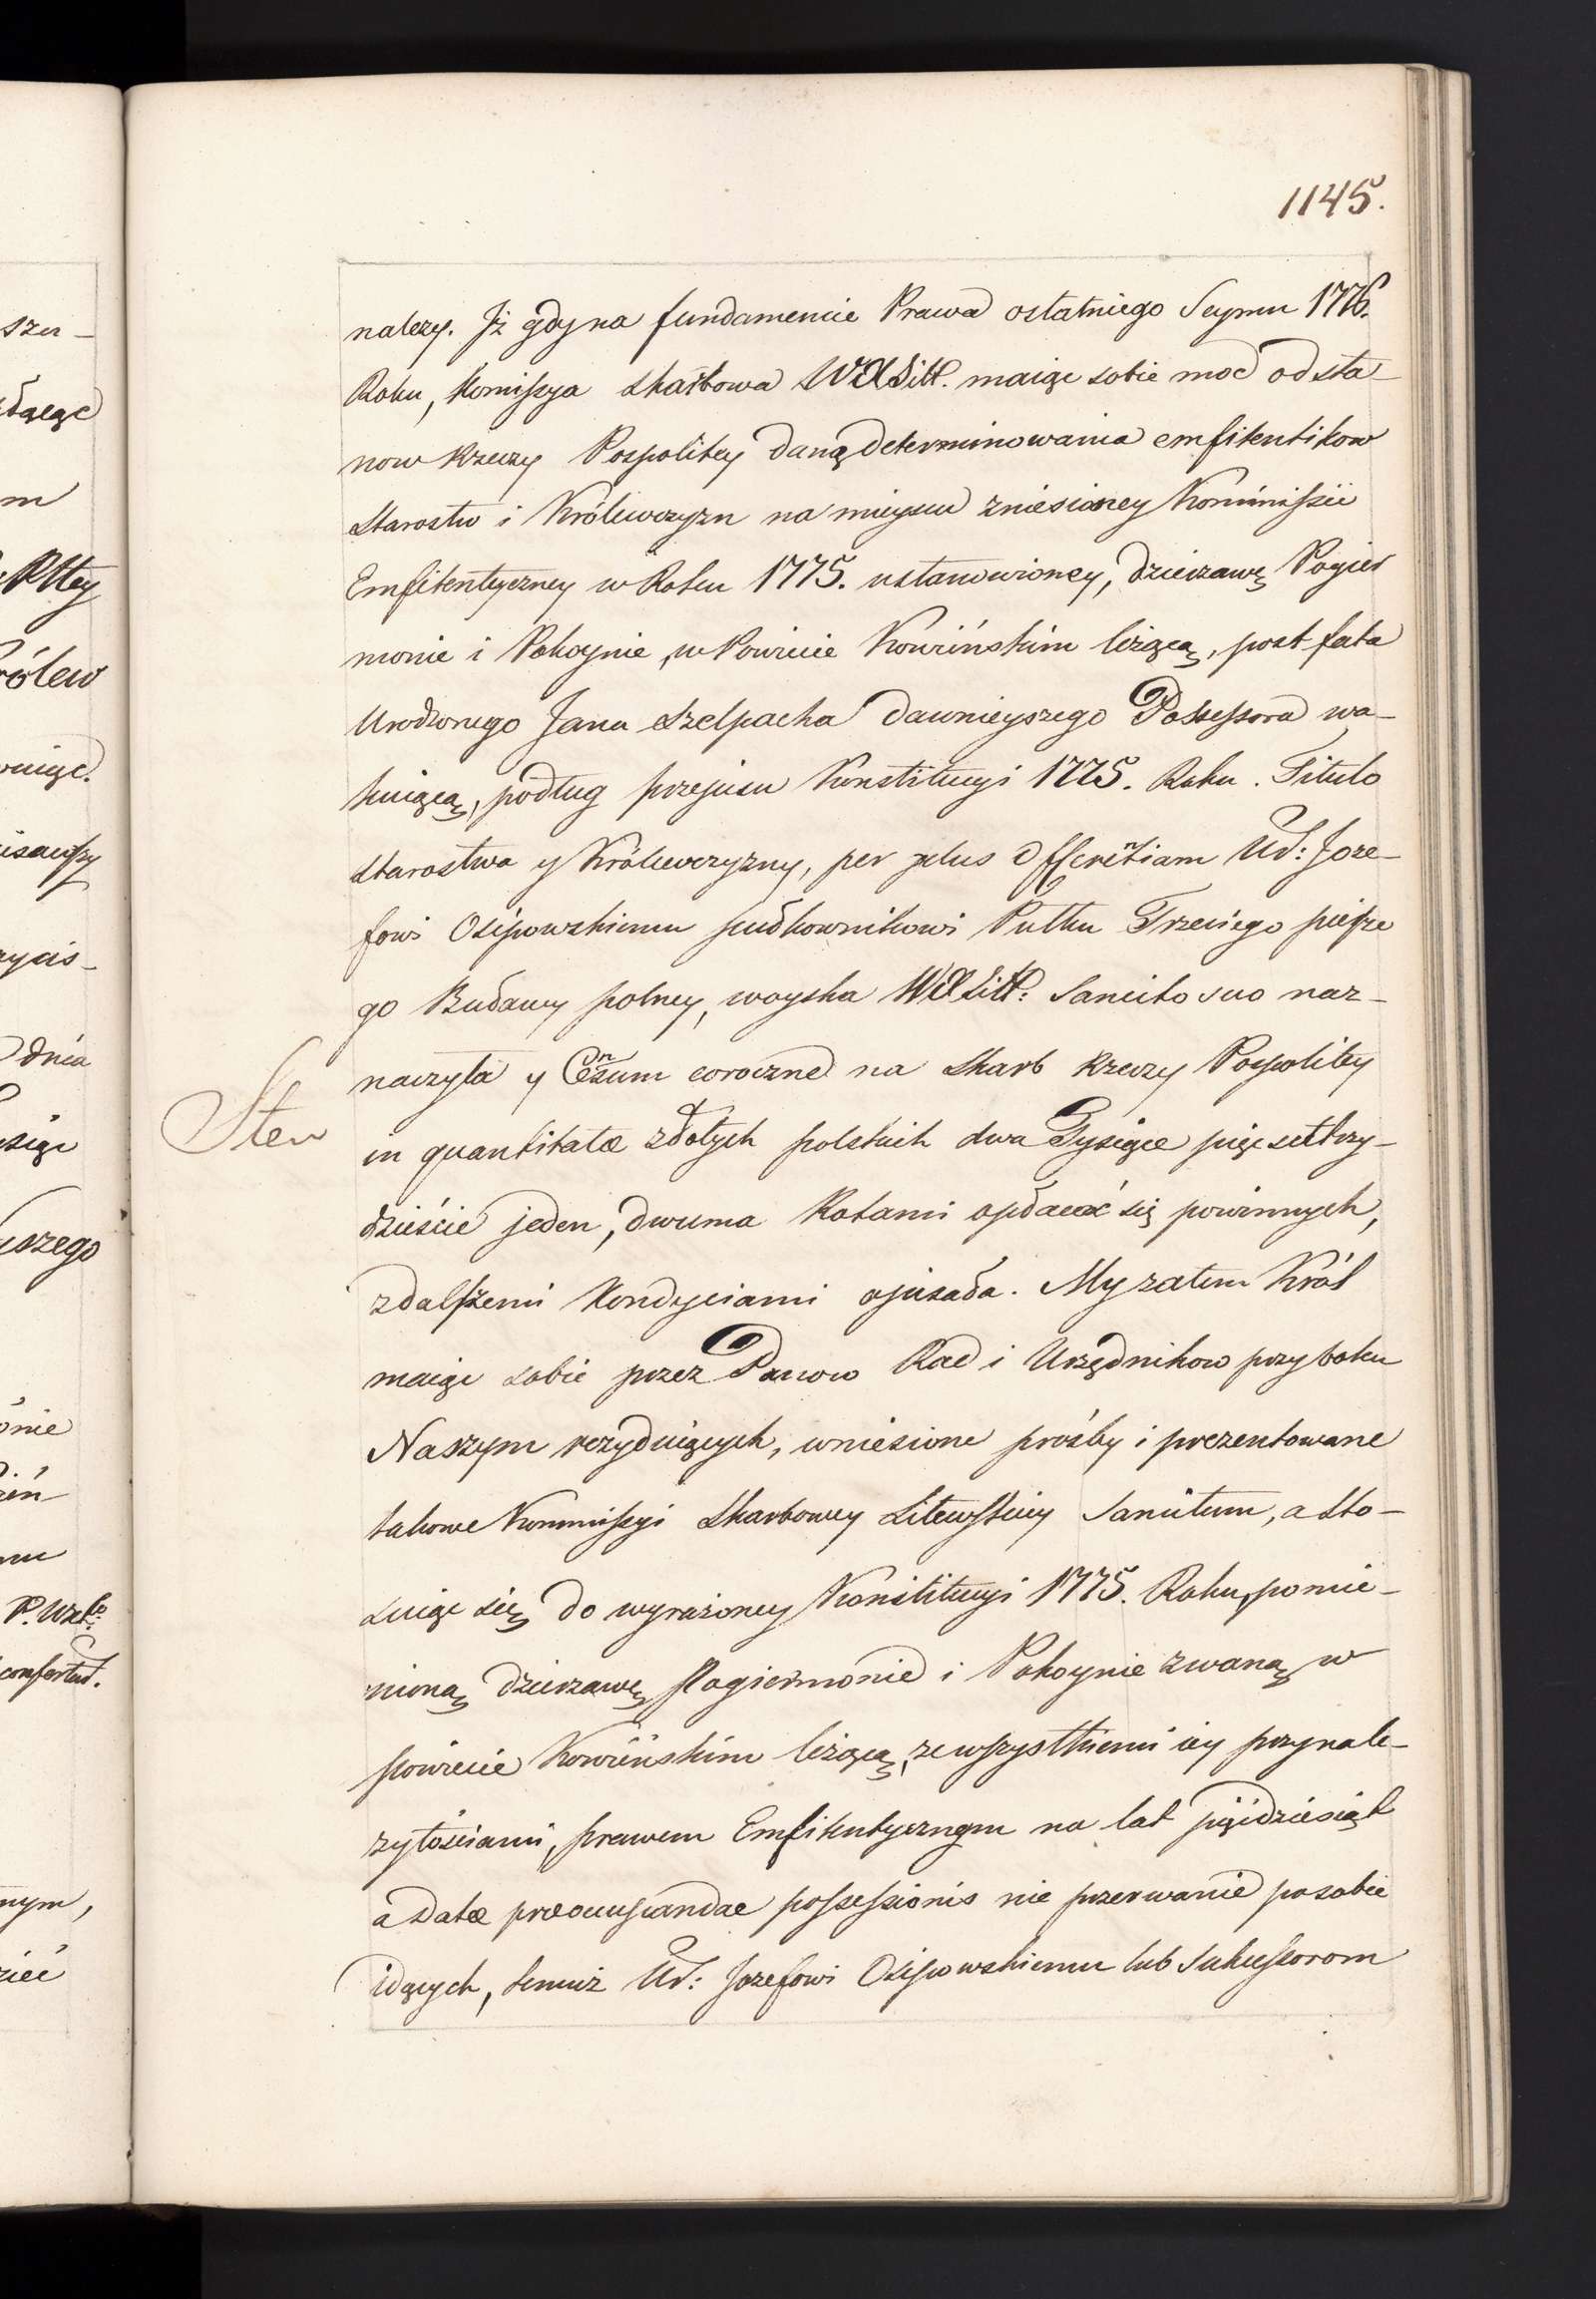 1145.
nalezy. Iż gdy na fundamencie Prawa ostatniego Seymu 1776.
Roku, Komissya skarbowa WXLitt. maiąc sobie moc od sta-
now Rzeczy Pospolitey daną determinowania emfiteutikow
Starostw i Królewczyzn na mieyscu zniesioney Kommissii
Emfiteutyczney w Roku 1775. ustanowioney, dzierzawę Pogier
monie i Pokoynie, w Powiecie Kowińskim leżącą, post fata
Urodzonego Jana Szelpacha dawnieyszego Possessora wa-
kuiącą, podług przepisu Konstitucyi 1775. Roku. Titulo
Starostwa y Królewczyzny, per plus Offerentiam Ur: Joze-
fowi Osipowskiemu pułkownikowi Pułku Trzeciego piesze
go Buławy polney, woyska WXLitt: Sancito suo naz-
naczyła y Censum coroczne na Skarb Rzeczy Pospolitey
Sten
in quantitate złotych polskich dwa Tysiące pięćset trzy-
dzieście jeden, dwuma Ratami opłacać się powinnych,
z dalszemi Kondyciami opisała. My zatem Król
maiąc sobie przez Panow Rad i Urzędnikow przy boku
Naszym rezyduiących, wniesione prośby i prezentowane
takowe Kommissyi Skarbowey Litewskiey Sancitum, a sto-
suiąc się do wyrażoney Konstitucyi 1775. Roku, pomie-
nioną dzierzawę Pogiermonie i Pokoynie zwaną w
powiecie Kowińskim leżącą, ze wszystkiemi iey przynale-
zytościami, prawem Emfiteutycznym na lat pięćdziesiąt
a data preoccupandae possessionis nie przerwanie po sobie
idących, temuż Ur: Jozefowi Osipowskiemu lub Sukcessorom
szer-
m
PLtey
rólew
dnia
uszego
nym,